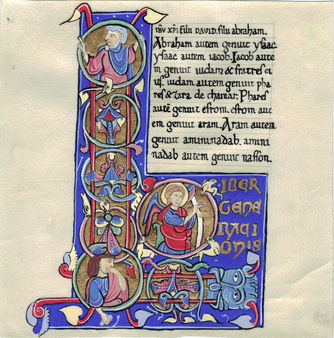 IHV XPI FILII DAVID. filii abraham.
Abraham autem genuit ysaac
ysaac autem iacob. Iacob aute
m genuit iudam & fratres ei
us. iudam autem genuit pha
res & zara de thamar. Phares
autē genuit esrom. esrom aut
em genuit aram. Aram autem
genuit aminadab. amini
nadab autem genuit nasson.
IBER
GENE
RACI
ONIS